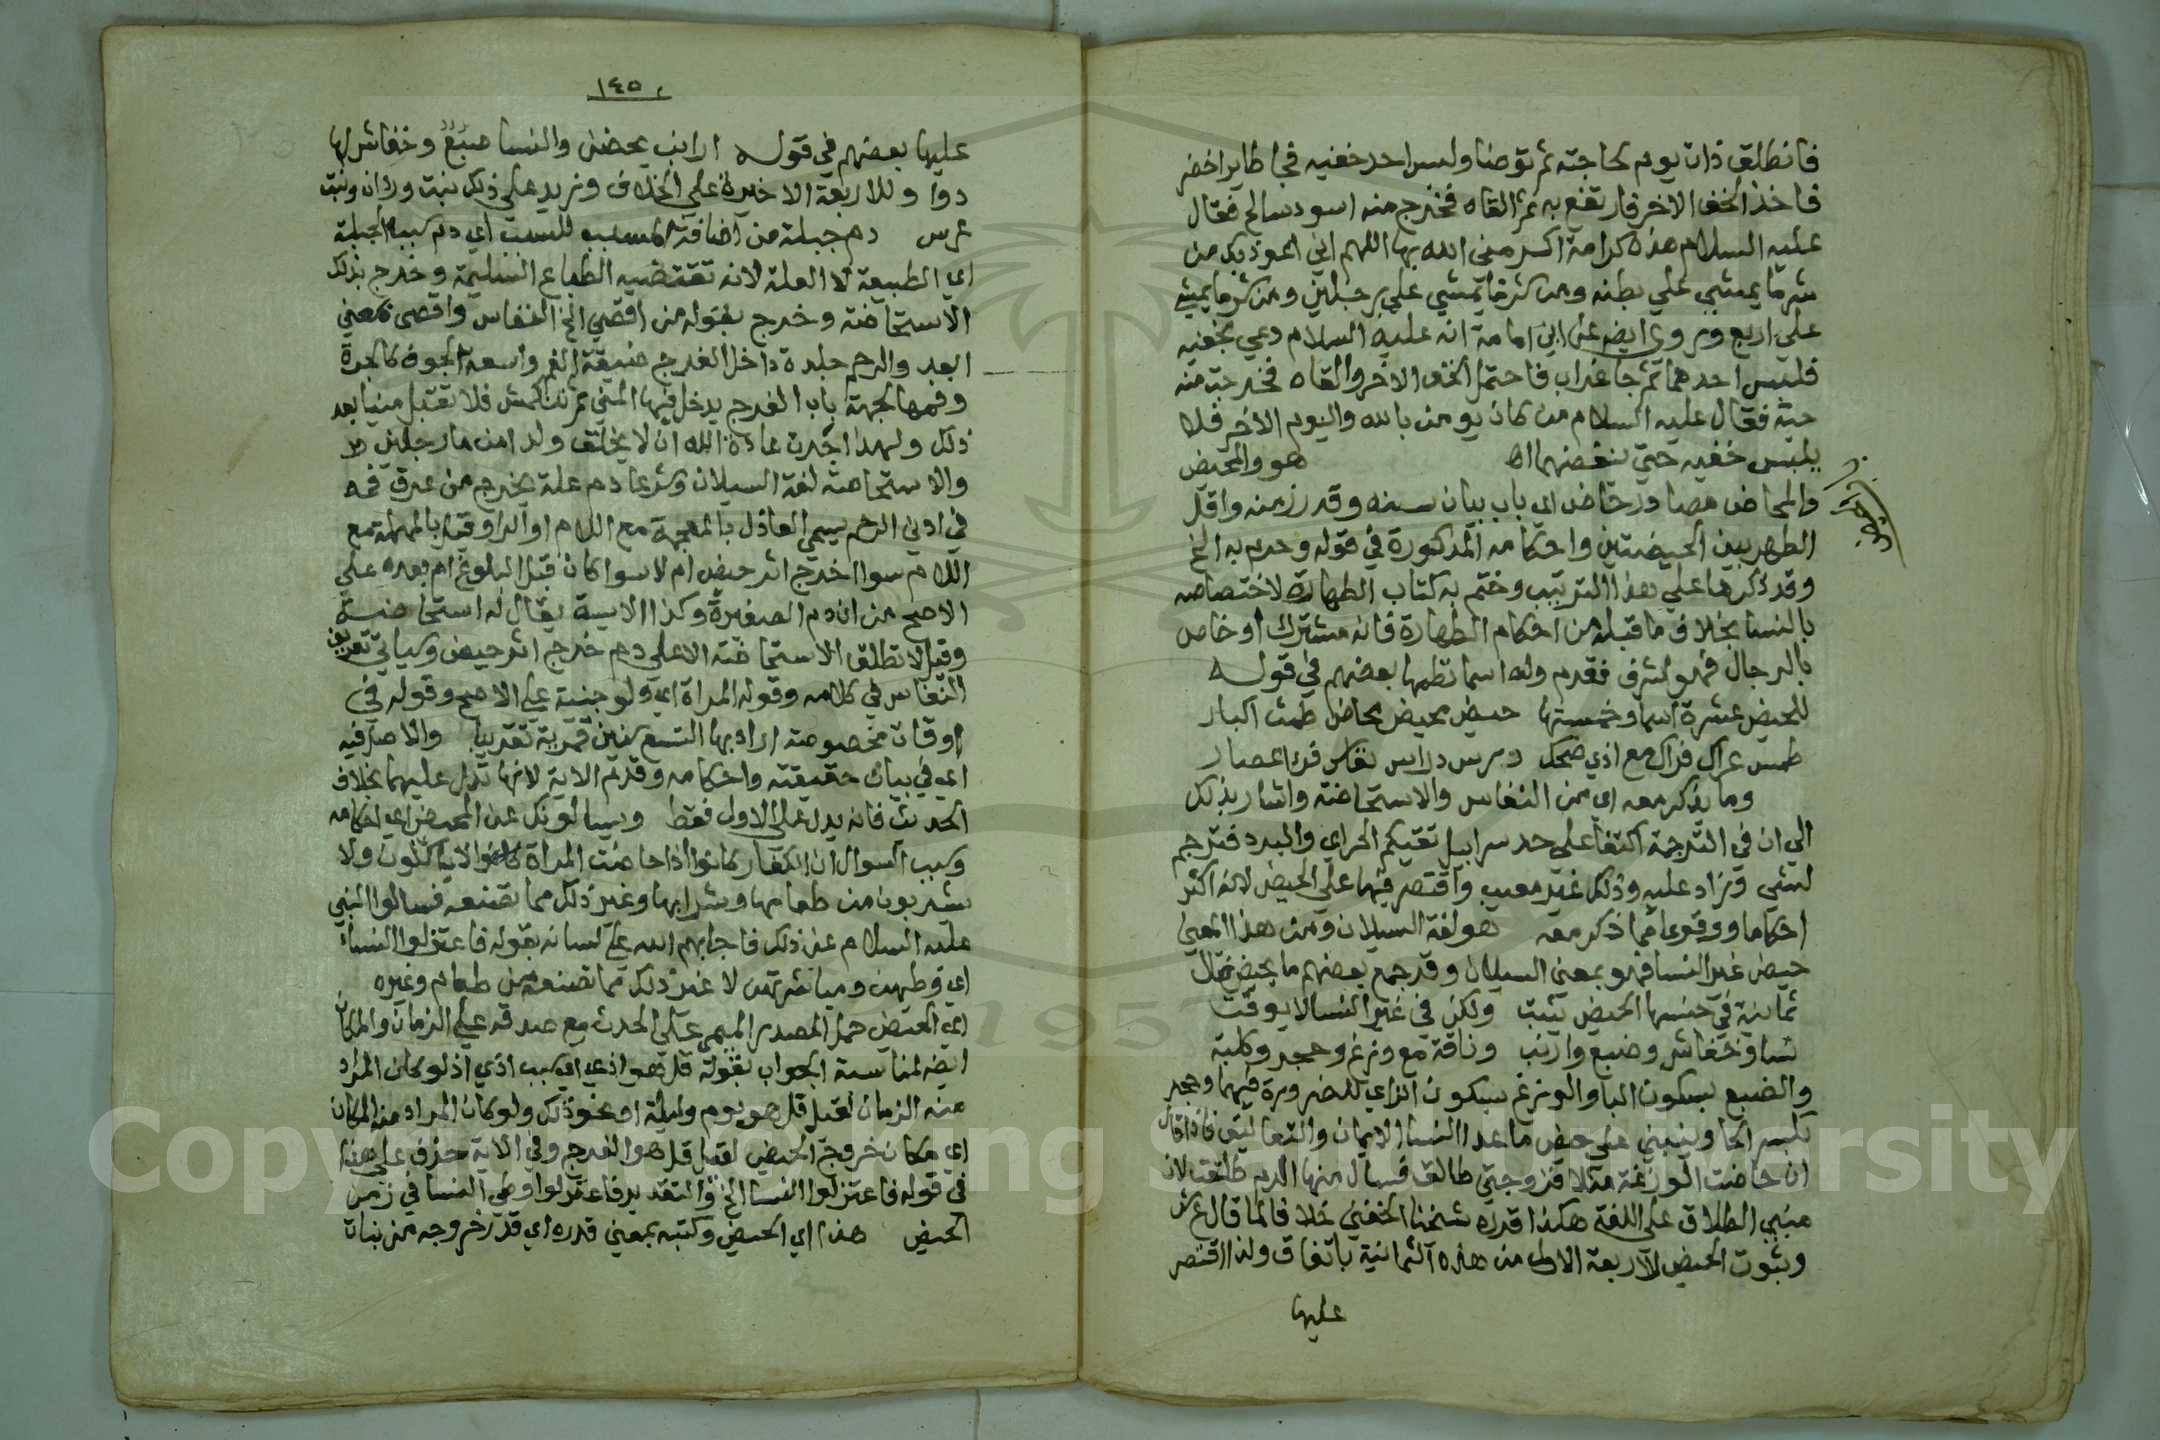 فانطلق ذات يوم لحاجته ثم توضا ولبس احد خفيه فجا طاير اخضر
فاخذ الخف الاخر فارتفع به ثم القاه فخرج منه اسود سالخ فقال
عليه السلام هذه كرامة اكرمني الله بها اللهم اني اعوذ بك من
شر ما يمشي علي بطنه ومن شر ما يمشي علي رجلين ومن شر ما يمشي
علي اربع وروي ايضا عن ابي امامة انه عليه السلام دعي بخفيه
فلبس احدهما ثم جا غراب فاحتمل الخف الاخر والقاه فخرجت منه
حية فقال عليه السلام من كان يومن بالله واليوم الاخر فلا
يلبس خفيه حتي ينفضهما اه هو والمحيض
والمحاض مصادر حاض اي باب بيان سنه وقدر زمنه واقل
الطهر بين الحيضتين واحكامه المذكورة في قوله وحرم به الخ
وقد ذكرها علي هذا الترتيب وختم به كتاب الطهارة لاختصاصه
بالنسا بخلاف ما قبله من احكام الطهارة فانه مشترك او خاص
بالرجال فهو اشرف فقدم وله اسما نظمها بعضهم في قوله
للحيض عشرة اسما وخمستها حيض محيض محاض طمث اكبار
طمس عراك فراك مع اذي ضحك درس دراس نفاس قرء اعصار
وما يذكر معه اي من النفاس والاستحاضة واشار بذلك
الي ان في الترجمة اكتفا علي حد سرابيل تقيكم الحر اي والبرد فترجم
لشي وزاد عليه وذلك غير معيب واقتصر فيها علي الحيض لانه اكثر
احكاما ووقوعا مما ذكر معه هو لغة السيلان ومن هذا المعني
حيض غير النسا فهو بمعني السيلان وقد جمع بعضهم ما يحيض فقال
ثمانية في جنسها الحيض يثبت ولكن في غير النسا لا يوقت
نسا وخفاش وضبع وارنب وناقة مع وزغ وحجر وكلبة
والضبع بسكون البا والوزغ بسكون الزاي للضرورة فيهما وحجر
بكسر الحا وينبني علي حيض ما عدا النسا الايمان والتعاليق فاذا قال
ان حاضت الوزغة مثلا فزوجتي طالق فسال منها الدم طلقت لان
مبني الطلاق علي اللغة هكذا قرره شيخنا الحفني خلافا لما قال ع ش
وثبوت الحيض للاربعة الاول من هذه الثمانية باتفاق ولذا اقتصر
عليها
باب الحيض
١٤٥
عليها بعضهم في قوله ارانب يحضن والنسا ضبع وخفاش لها
دوا وللاربعة الاخيرة علي الخلاف وزيد علي ذلك بنت وردان وبنت
عرس دم جبلة من اضافة المسبب للسبب اي دم سببه الجبلة
اي الطبيعة لا العلة لانه تقتضيه الطباع السليمة وخرج بذلك
الاستحاضة وخرج بقوله من اقصي الخ النفاس واقصي بمعني
ابعد والرحم جلدة داخل الفرج ضيقة الفم واسعة الجوف كالجرة
وفمها لجهة باب الفرج يدخل فيها المني ثم تنكمش فلا تقبل منيا بعد
ذلك ولهذا اجرت عادة الله ان لا يخلق ولد من ما رجلين
والاستحاضة لغة السيلان وشرعا دم علة يخرج من عرق فمه
في ادني الرحم يسمي العاذل بالمعجمة مع اللام او الرا وقيل بالمهملة مع
اللام سوا اخرج اثر حيض ام لا سوا كان قبل البلوغ ام بعده علي
الاصح من ان دم الصغيرة وكذا الايسة يقال له استحاضة
وقيل لا تطلق الاستحاضة الا علي دم خرج اثر حيض وسياتي تعريف
النفاس في كلامه وقوله المراة اي ولو جنية علي الاصح وقوله في
اوقات مخصوصة اراد بها التسع سنين قمرية تقريبا والاصل فيه
اي في بيان حقيقته واحكامه وقدم الاية لانها تدل عليهما بخلاف
الحديث فانه يدل علي الاول فقط ويسالونك عن المحيض اي احكامه
وسبب السوال ان الكفار كانوا اذا حاضت المراة كانوا لا ياكلون ولا
يشربون من طعامها وشرابها وغير ذلك مما تصنعه فسالوا النبي
عليه السلام عن ذلك فاجابهم الله علي لسانه بقوله فاعتزلوا النساء
اي وطيهن ومباشرتهن لا غير ذلك مما تصنعه من طعام وغيره
اي الحيض حمل المصدر الميمي علي الحدث مع صدقه علي الزمان والمكان
ايضا لمناسبة الجواب بقوله قل هو اذي اي سبب اذي اذ لو كان المراد
منه الزمان لقيل قل هو يوم وليلة او نحو ذلك ولو كان المراد منه المكان
اي مكان خروج الحيض لقيل قل هو الفرج وفي الاية حذف علي هذا
في قوله فاعتزلوا النسا الخ والتقدير فاعتزلوا وطي النسا في زمن
الحيض هذا اي الحيض وكتبه بمعني قدره اي قدر خروجه من بنات
Copyright © King Saud University
1957